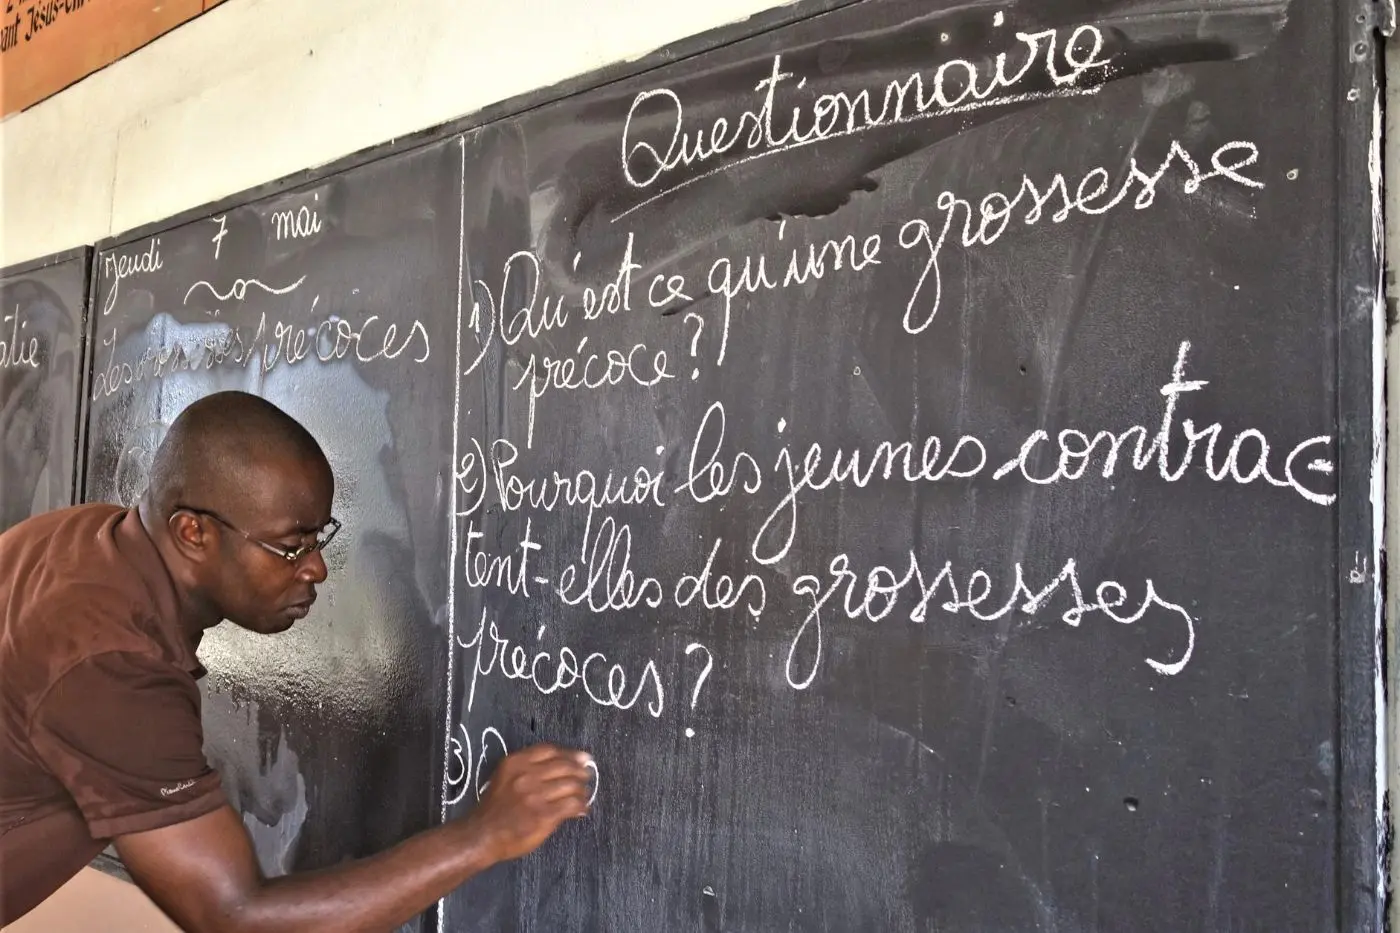 ant Jésus-Chr
Jeudi 7 mai
Les grossesses précoces
Questionnaire
1) Qu'est ce qu'une grossesse
précoce ?
2) Pourquoi les jeunes contrac-
tent-elles des grossesses
précoces ?
3)